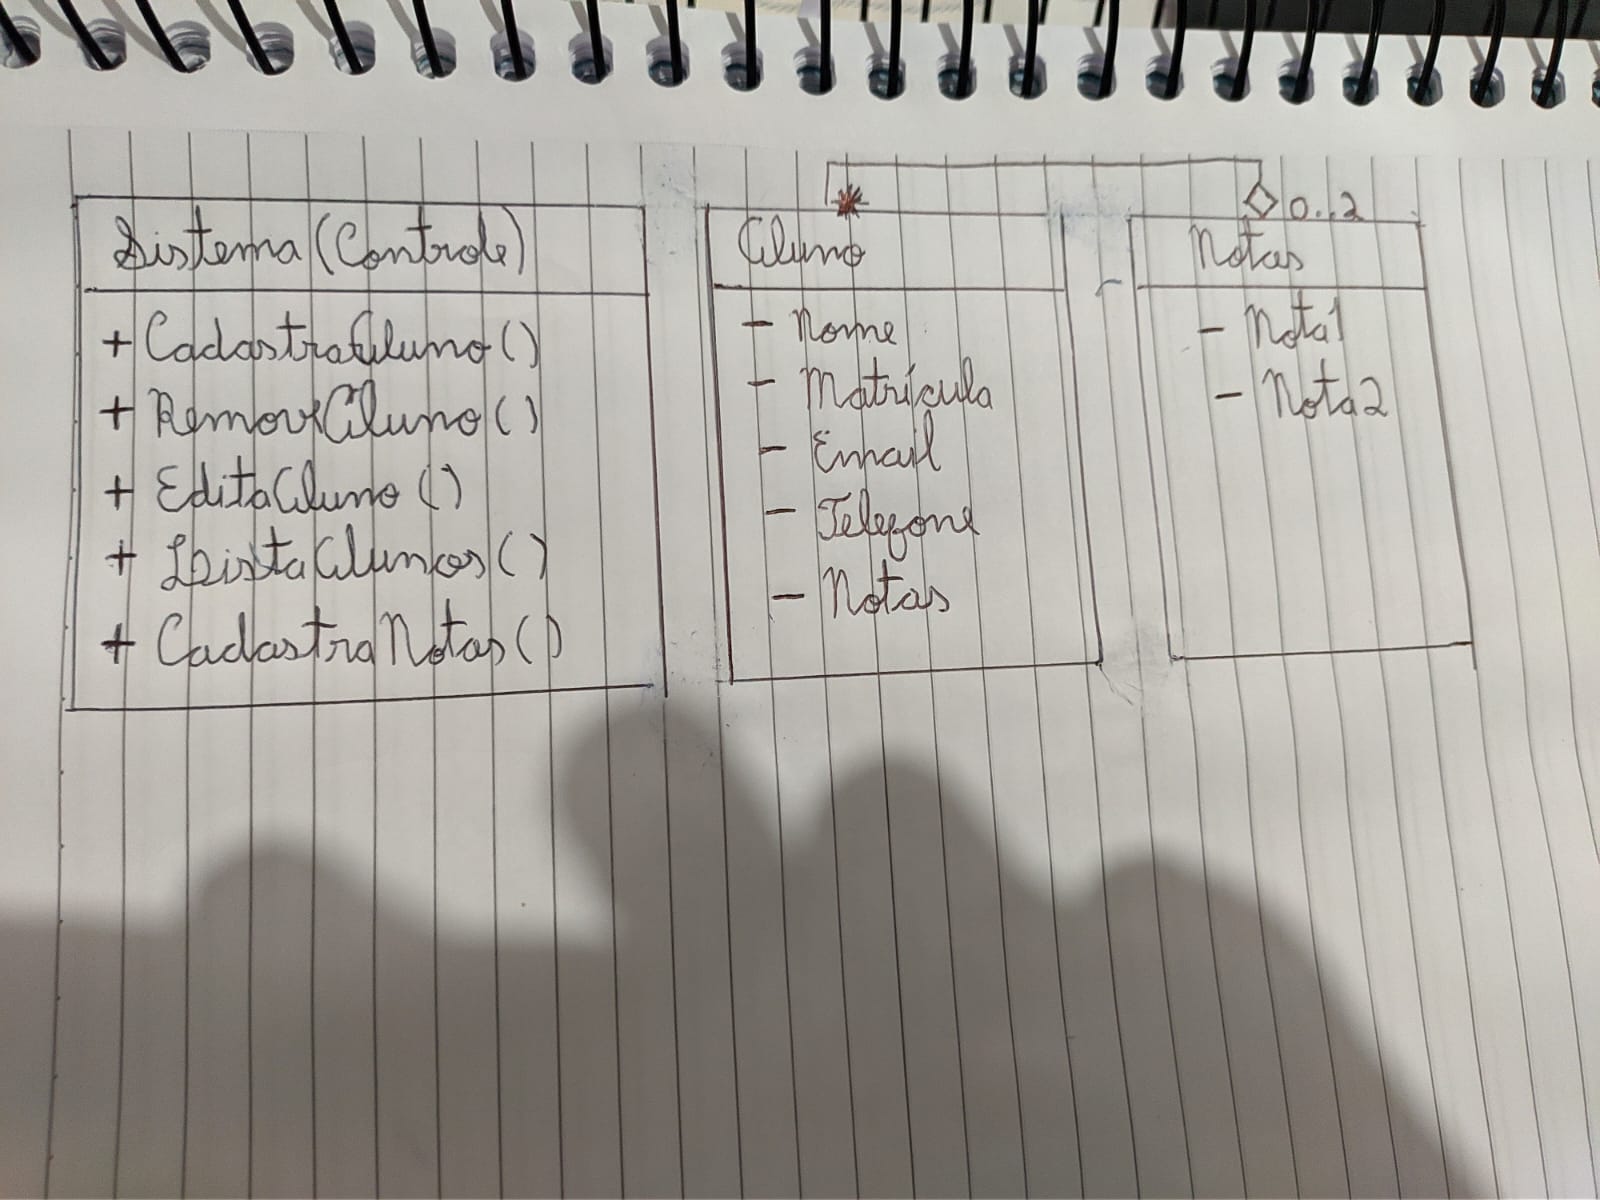 Sistema (Controle)
+ CadastraAluno ()
+ RemoveAluno ()
+ EditaAluno ()
+ ListaAlunos ()
+ CadastraNotas ()
*
Aluno
- Nome
- Matrícula
- Email
- Telefone
- Notas
0..2
Notas
- Nota1
- Nota2